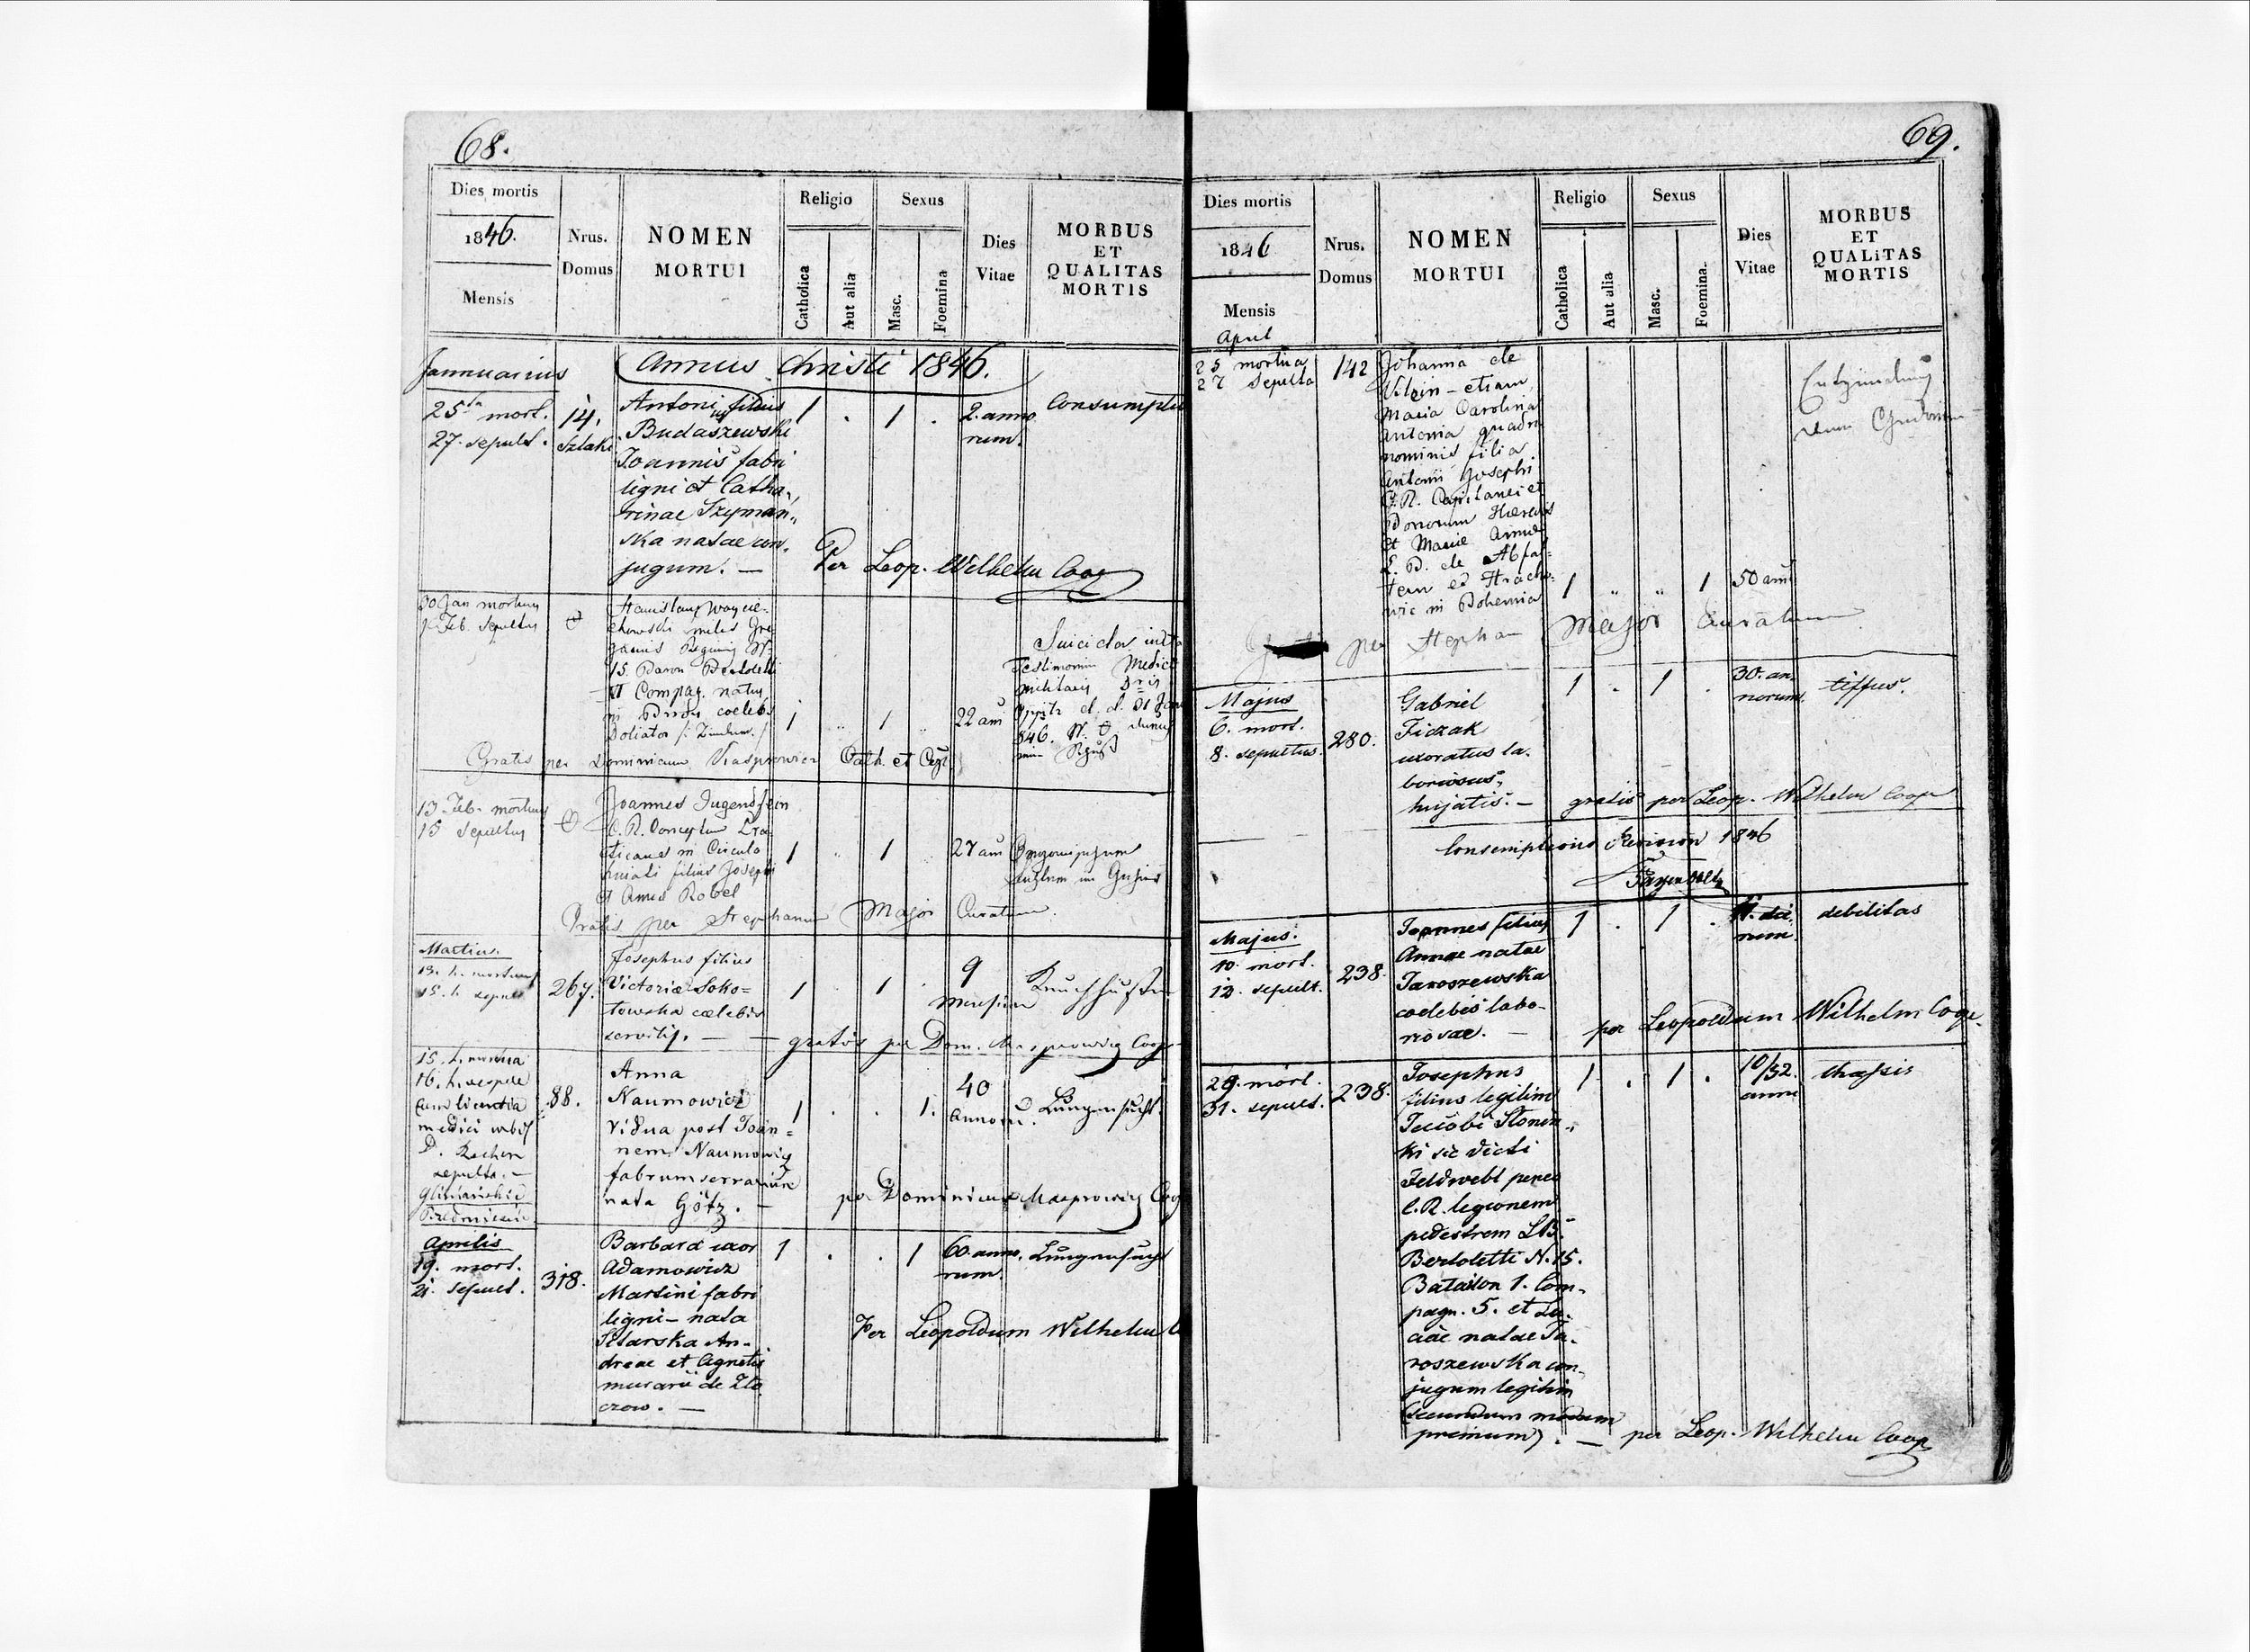 68.
Dies mortis
1846.
Mensis
Nrus.
Domus
NOMEN
MORTUI
Religio
Catholica
Aut alia
Sexus
Masc.
Foemina
Dies
Vitae
MORBUS
ET
QUALITAS
MORTIS
Jannuarius
Annus Christi 1846.
25ta mort.
27. sepult.
14.
Szlaki
Antonius filius
Budaszewski
Joannis fabri
ligni et Catha„
rinae Szyman„
ska natae con„
jugum. —
1 . 1 .
2. anno
rum.
Consumptio
Per Leop. Wilhelm Coop
30 Jan mortuus
1 Feb. sepultus
Stanislaus Woycie-
chowski miles Gre
15. Baron Bertoletti
VI Compag. natus
in coelebs
1 „ 1 „
22 ann
Suicidas
Testimonium Medici
militaris
846. N.
Gratis per Dominicum Cath. et Coop.
13. Feb. mortuus
15 sepultus
Joannes Jugendfein
C. R. Conceptus Prac
ticans in Circulo
filius Josephi
et Annae Robel
1 „ 1 „
27 ann
Gratis per Stephanum Major Curatum.
Martius.
13. h. mortuus
15. h. sepult
267.
Josephus filius
Victoriae Soko=
towska caelebis
servilis. —
1 . 1 .
9
mensium
Keuchhusten
gratis per Dom. Coop
15. h. mortua
16. h. vespere
cum licentia
medici urbis
D.
sepulta. —
88.
Anna
Naumowicz
vidua post Joan=
nem Naumowicz
fabrum serrarium
nata Götz. —
1 . . 1.
40
Annorum.
Lungensucht.
per Dominicum Coop
Aprilis
19. mort.
21. sepult.
318.
Barbara uxor
Adamowicz
Martini fabri
ligni — nata
An-
dreae et Agnetis
murarii de Zlo
czow. —
1 . . 1
60. anno.
rum.
Lungensucht
Per Leopoldum Wilhelm
69.
Dies mortis
1846
Mensis
April
Nrus.
Domus
NOMEN
MORTUI
Religio
Catholica
Aut alia
Sexus
Masc.
Foemina.
Dies
Vitae
MORBUS
ET
QUALITAS
MORTIS
25 mortua
27 sepulta
142
Johanna de
etiam
Maria Carolina
Antonia quadri
nominis filia
Antonii Josephi
C. R. Capitanei et
Bonorum
et Mariae Annae
L. B. de
in Bohemia
1 „ „ 1
50 ann
Entzündung
per Stephan Major Curatum
Majus
6. mort.
8. sepultus.
280.
Gabriel
Ficzak
uxoratus la.
boriosus,
hujatis. —
1 . 1 .
30. an.
norum.
tiffus.
gratis per Leop. Wilhelm Coop
Conscriptions Revision 1846
Majus.
10. mort.
12. sepult.
238.
Joannes filius
Annae natae
Jaroszewska
coelebis labo-
riosae. —
1 . 1 .
debilitas
per Leopoldum Wilhelm Coop.
29. mort.
31. sepult.
238.
Josephus
filius legitim
Jacobi Slonin„
ki sic dicti
Feldwebl penes
C. R. legionem
pedestrem LB.
Bertoletti N. 15.
Batailon 1. Com-
pagn. 5. et Lu.
ciae natae Ja.
roszewska con„
jugum legitim
(secundum modum
primum). —
1 . 1 .
10/52.
anni
per Leop. Wilhelm Coop